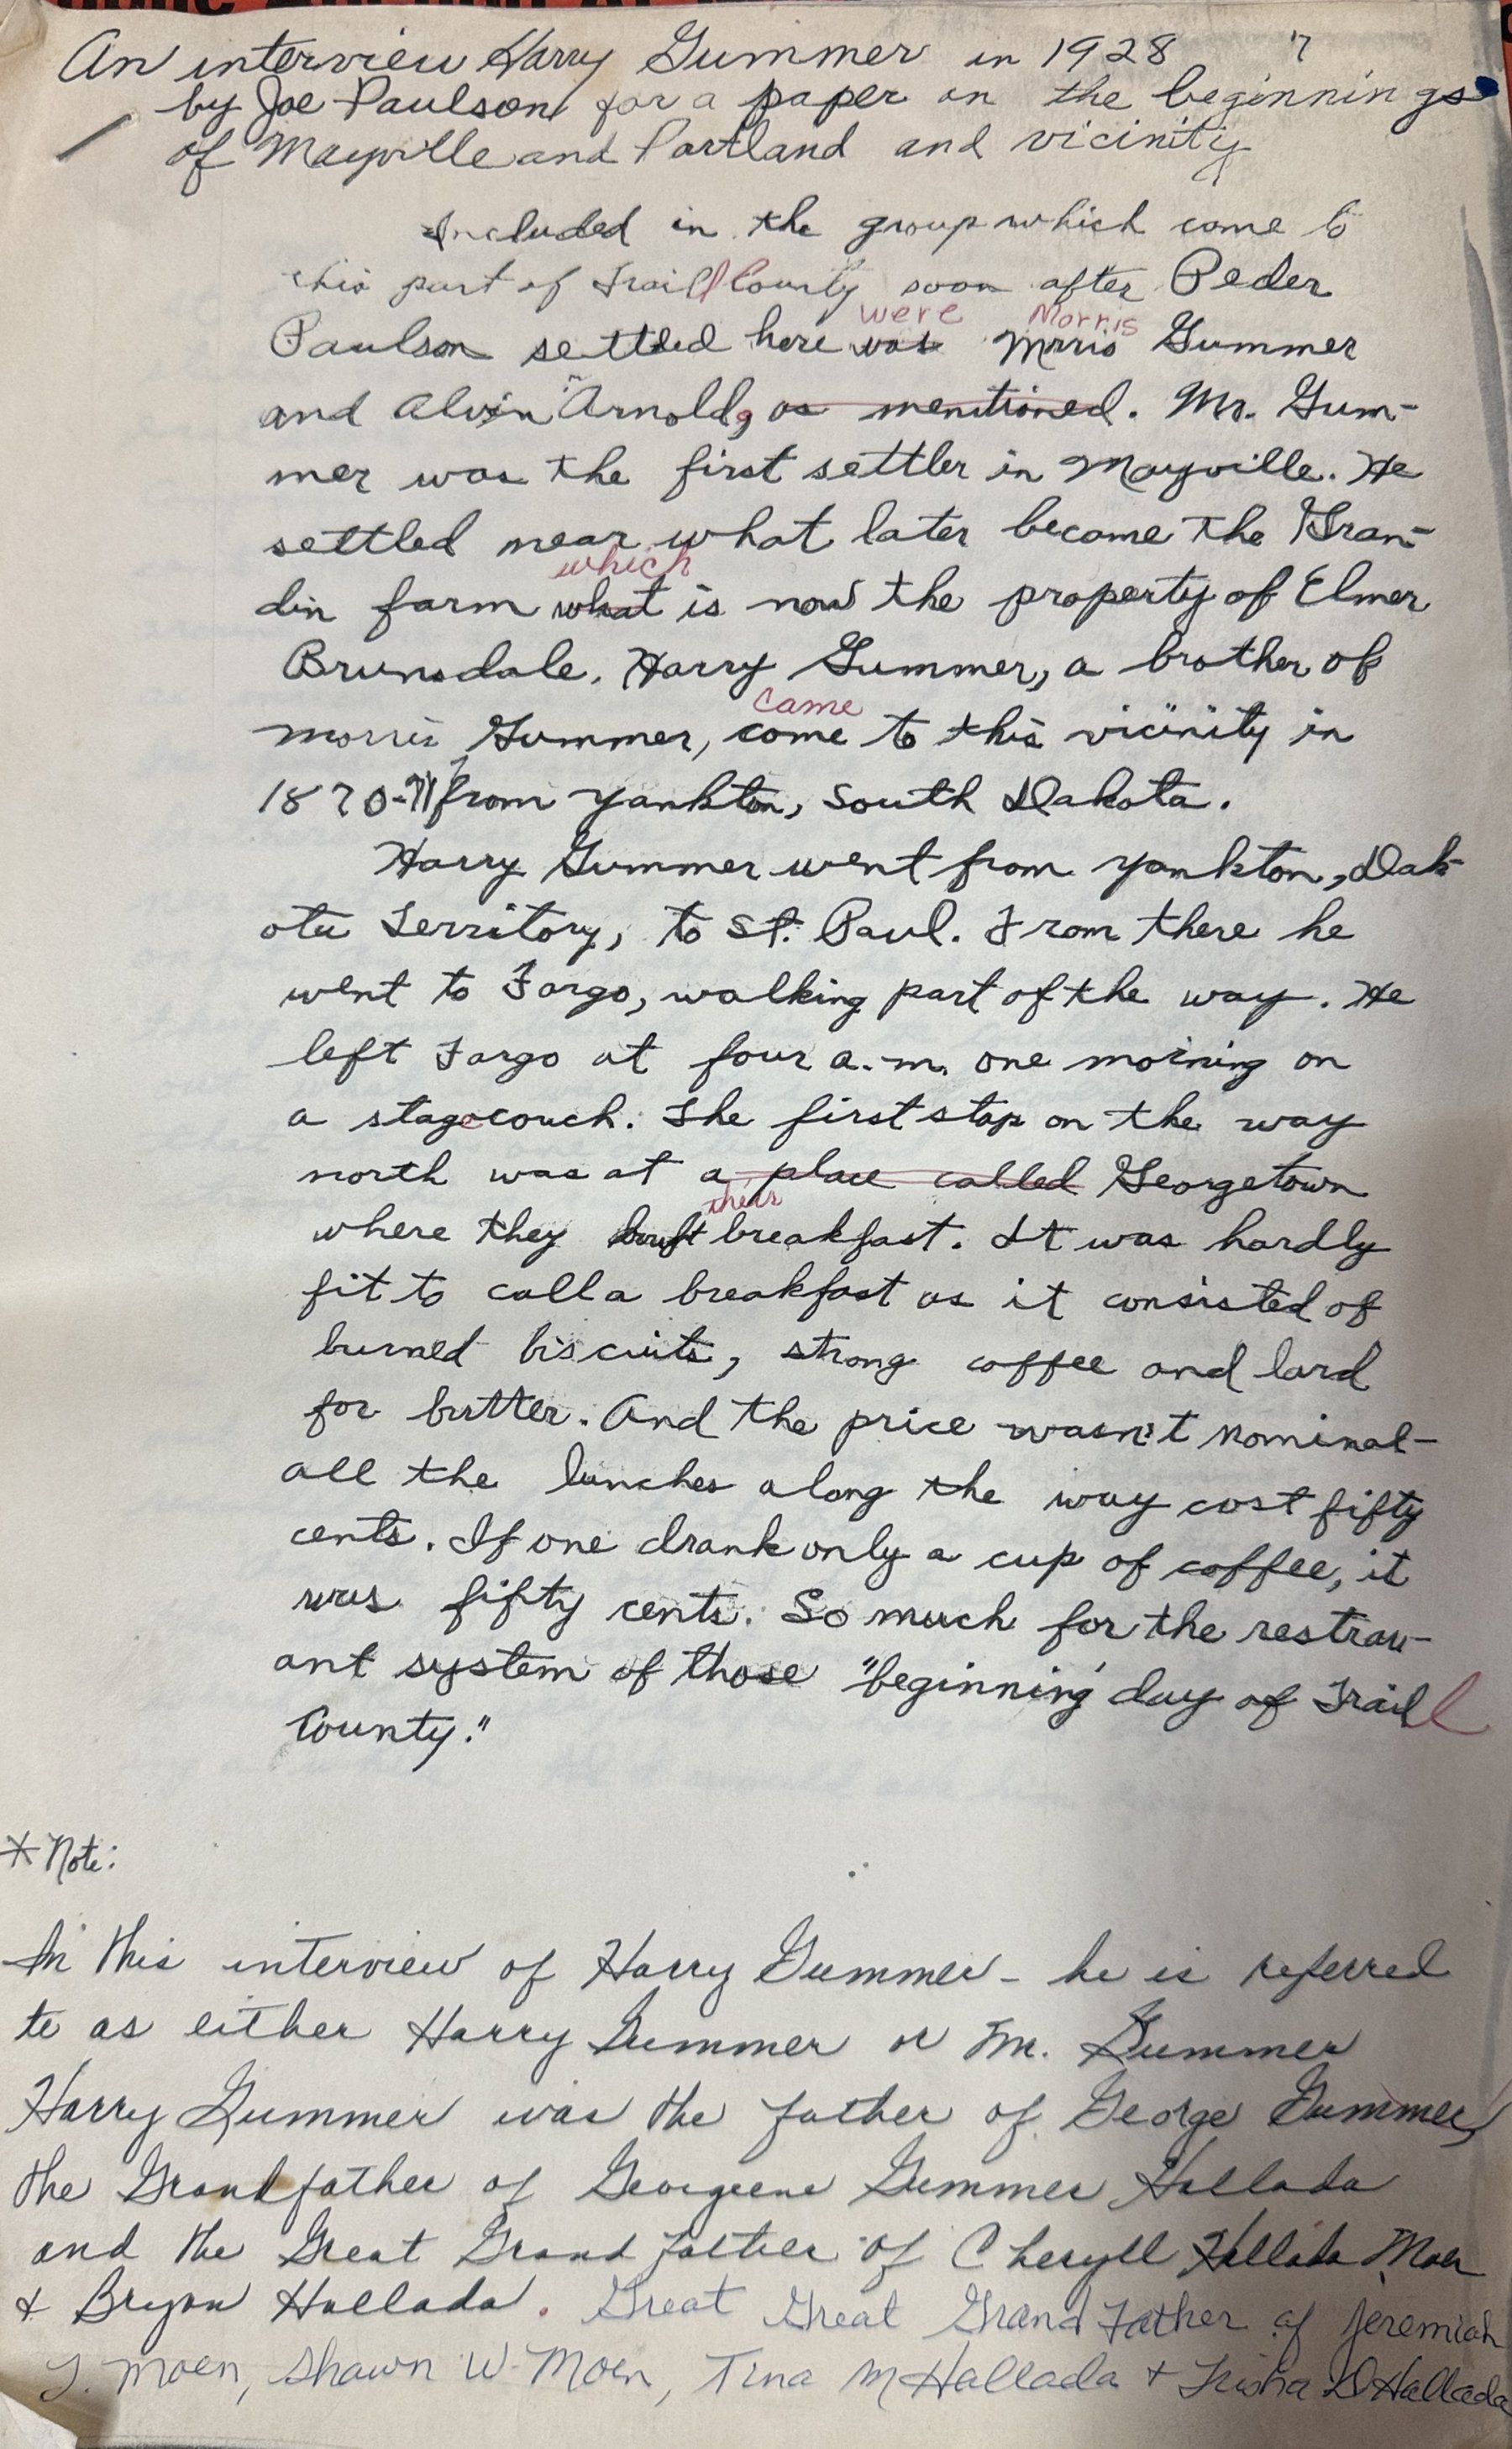 An interview Harry Gummer in 1928
by Joe Paulson for a paper on the beginnings
of Mayville and Portland and vicinity
Included in the group which come to
this part of Traill County soon after Peder
were Morris
Paulson settled here was Morris Gummer
and Alvin Arnold, as mentioned. Mr. Gum-
mer was the first settler in Mayville. He
settled near what later became the Gran-
which
din farm what is now the property of Elmer
Brunsdale. Harry Gummer, a brother of
came
Morris Gummer, come to this vicinity in
1870-71 from Yankton, South Dakota.
Harry Gummer went from Yankton, Dak-
ota Territory, to St. Paul. From there he
went to Fargo, walking part of the way. He
left Fargo at four a.m. one morning on
a stagecoach. The first stop on the way
north was at a place called Georgetown
their
where they breakfast. It was hardly
fit to call a breakfast as it consisted of
burned biscuits, strong coffee and lard
for butter. And the price wasn't nominal-
all the lunches along the way cost fifty
cents. If one drank only a cup of coffee, it
was fifty cents. So much for the restrau-
ant system of those "beginning day of Traill
County."
* Note:
In this interview of Harry Gummer - he is referred
to as either Harry Gummer or Mr. Gummer
Harry Gummer was the father of George Gummer,
the Grandfather of Georgeene Gummer Hallada
and the Great Grand father of Cheryll Hallada Moen
+ Bryan Hallada. Great Great Grand Father of Jeremiah
J. Moen, Shawn W. Moen, Tina M Hallada + Trisha D Hallada